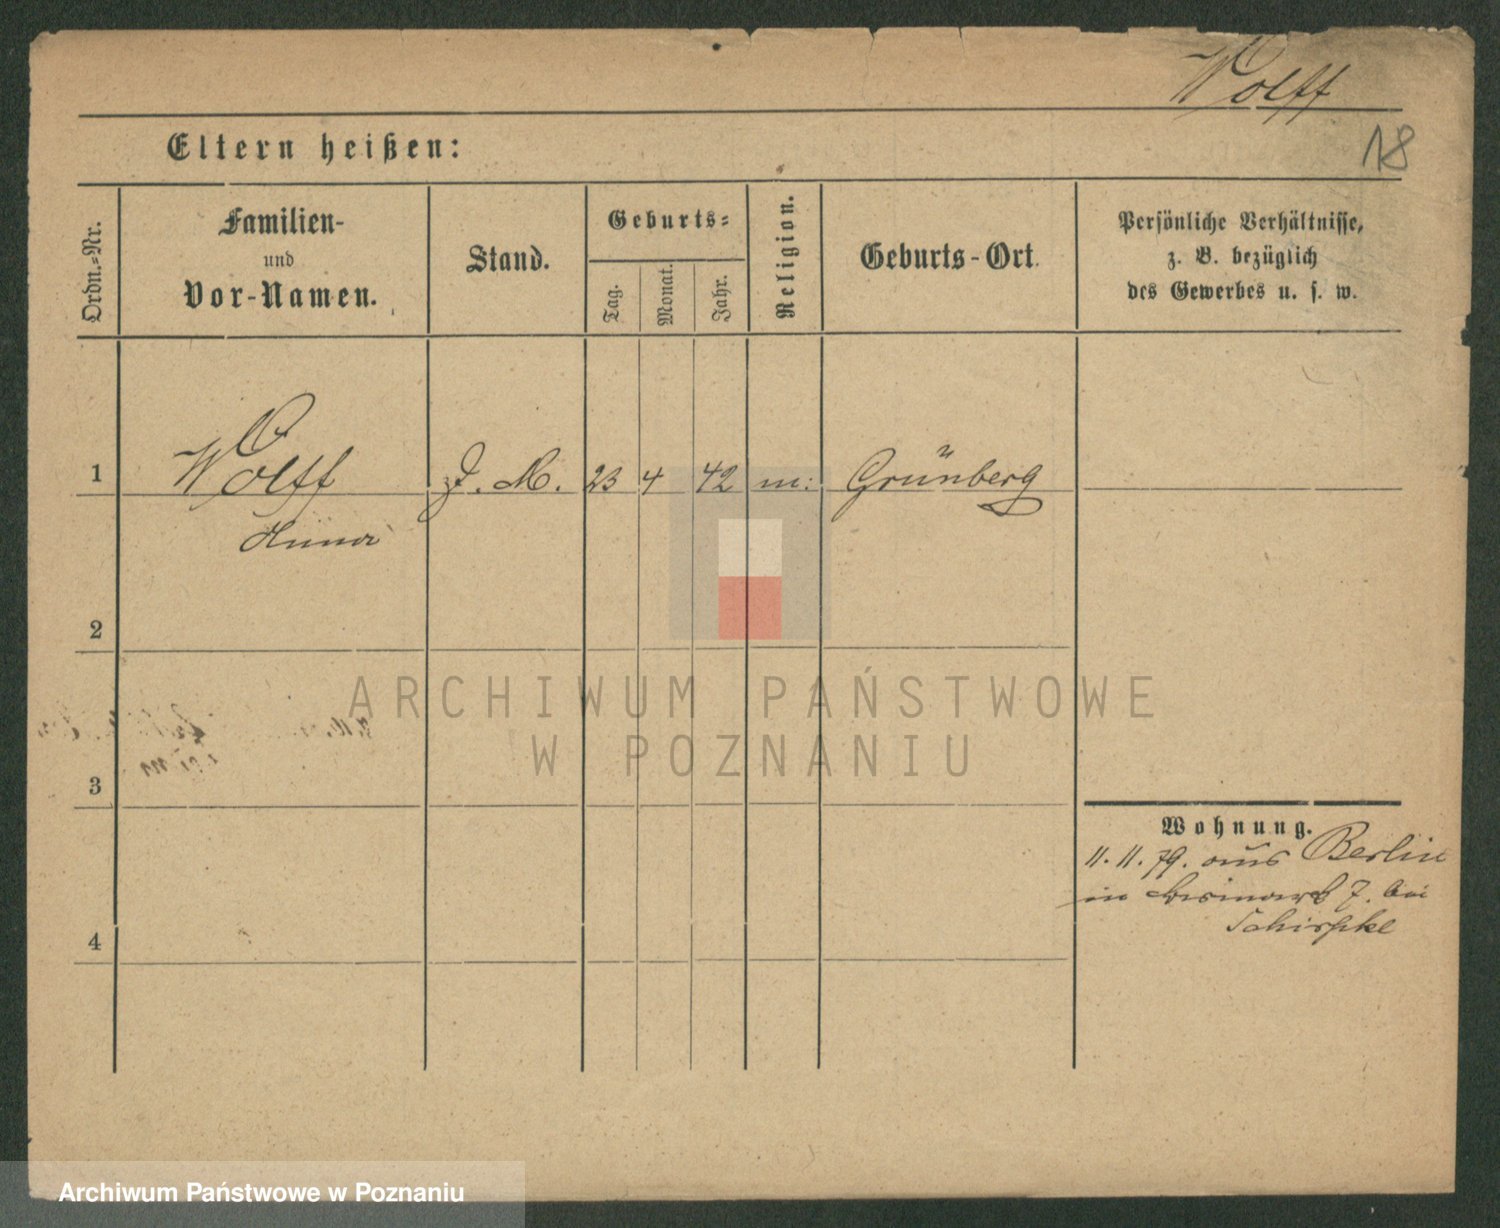 Wolff
18
Eltern heißen:
Ordn.-Nr.
Familien-
und
Vor-Namen.
Stand.
Geburts-
Tag.
Monat.
Jahr.
Religion.
Geburts-Ort.
Persönliche Verhältnisse,
z. B. bezüglich
des Gewerbes u. s. w.
1 Wolff 23 4 42 m: Grünberg
2
ARCHIWUM PAŃSTWOWE
W POZNANIU
3
Wohnung.
11. 11. 79. aus Berlin
in Bismark 7. bei
Schirpke
4
Archiwum Państwowe w Poznaniu